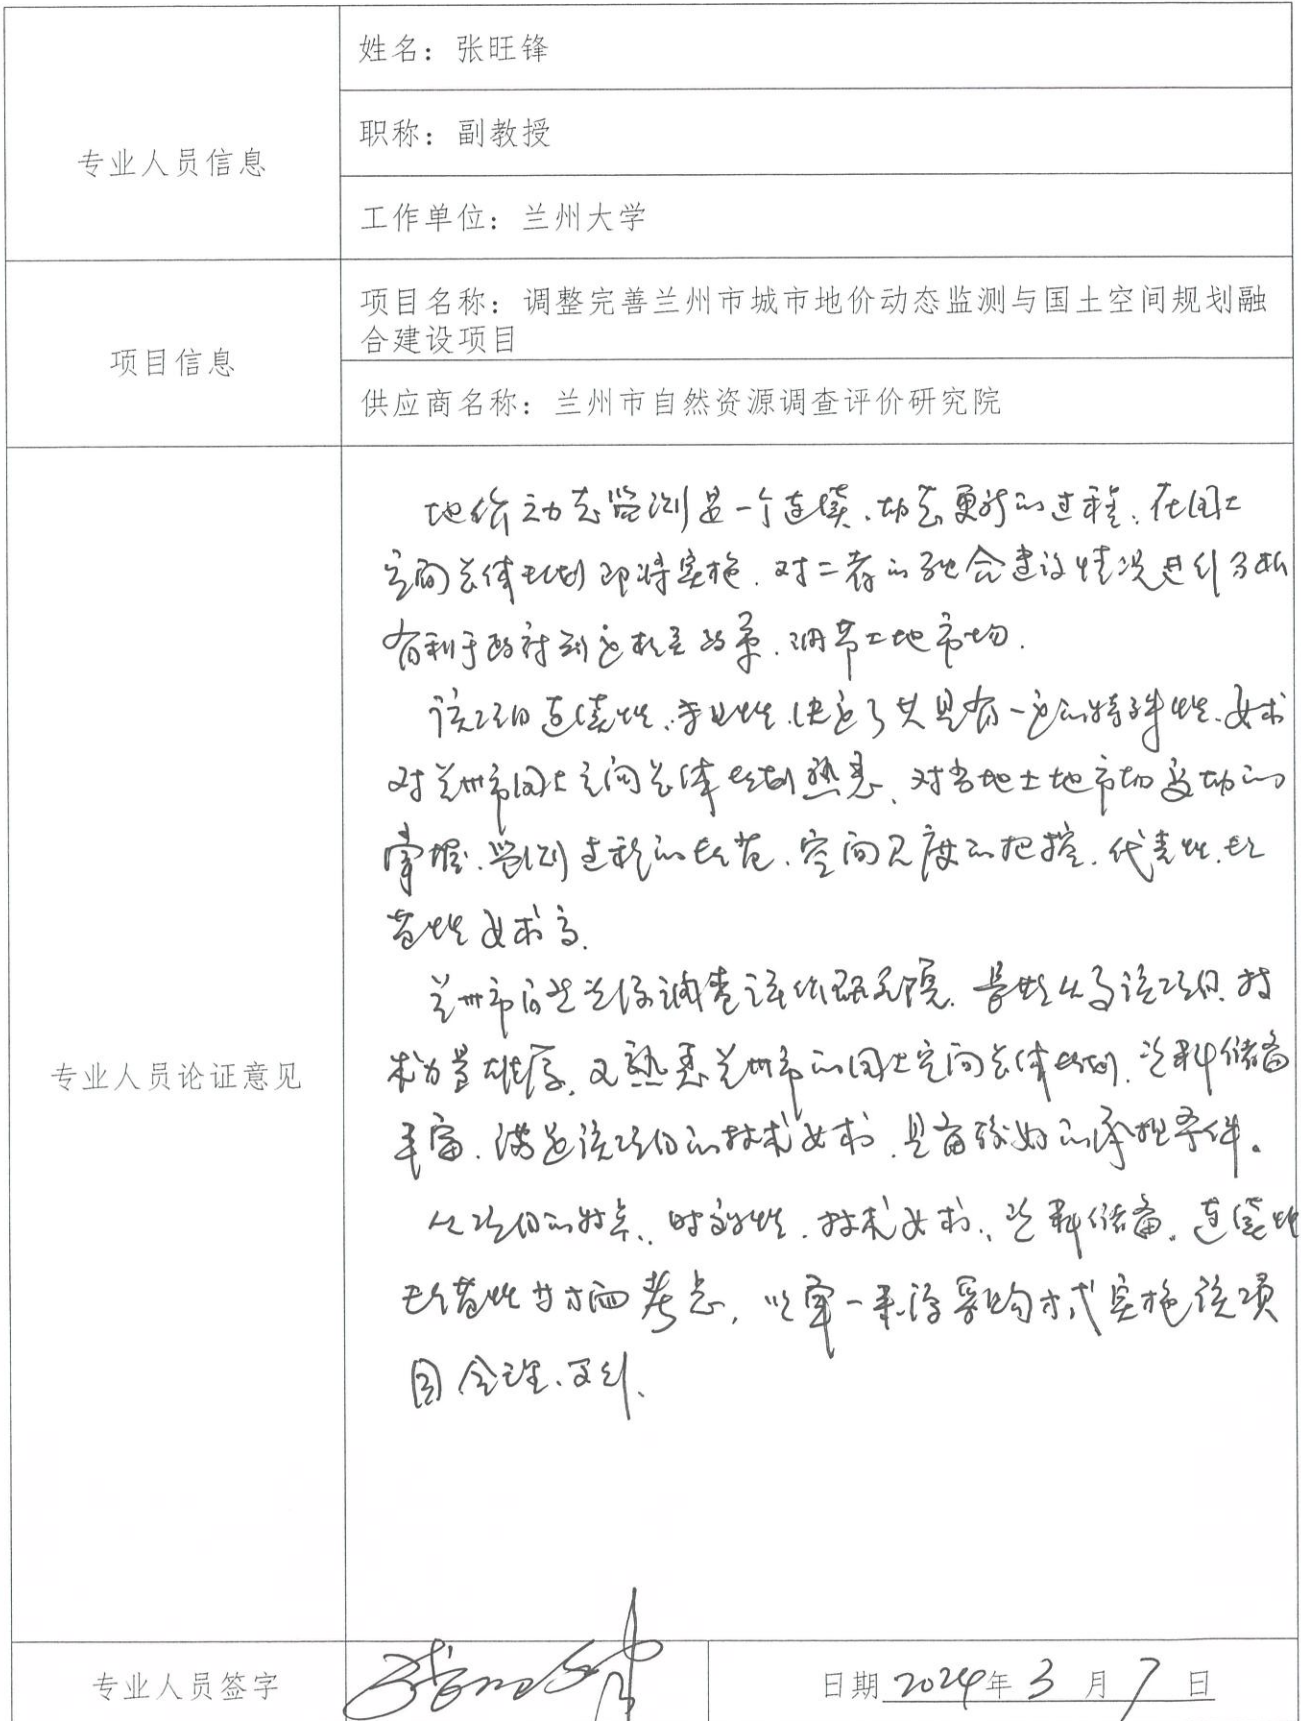 姓名：张旺锋
职称：副教授
专业人员信息
工作单位：兰州大学
项目名称：调整完善兰州市城市地价动态监测与国土空间规划融
合建设项目
项目信息
供应商名称：兰州市自然资源调查评价研究院
地价动态监测是一个连续、动态更新的过程，在国土
空间总体规划即将实施，对二者的融合建设情况进行分析
有利于政府制定相关政策，调节土地市场.
该项目连续性、专业性，决定了其具有一定的特殊性，要求
对兰州市国土空间总体规划熟悉、对当地土地市场变动的
掌握、监测过程的规范、空间尺度的把控，代表性、规
范性要求高.
兰州市自然资源调查评价研究院，长期从事该项目，技
术力量雄厚，又熟悉兰州市的国土空间总体规划，资料储备
丰富，满足该项目的技术要求，具备较好的承担条件。
专业人员论证意见
从项目的特点、时效性、技术要求、资料储备、连续性
规范性等方面考虑，以单一来源采购方式实施该项
目合理、可行、
专业人员签字
日期 2024年 3 月 7 日